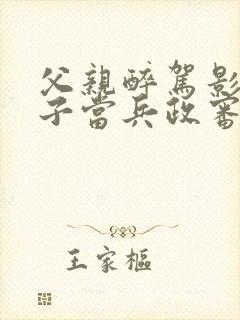 父親醉駕影
子當兵政審
王家樞